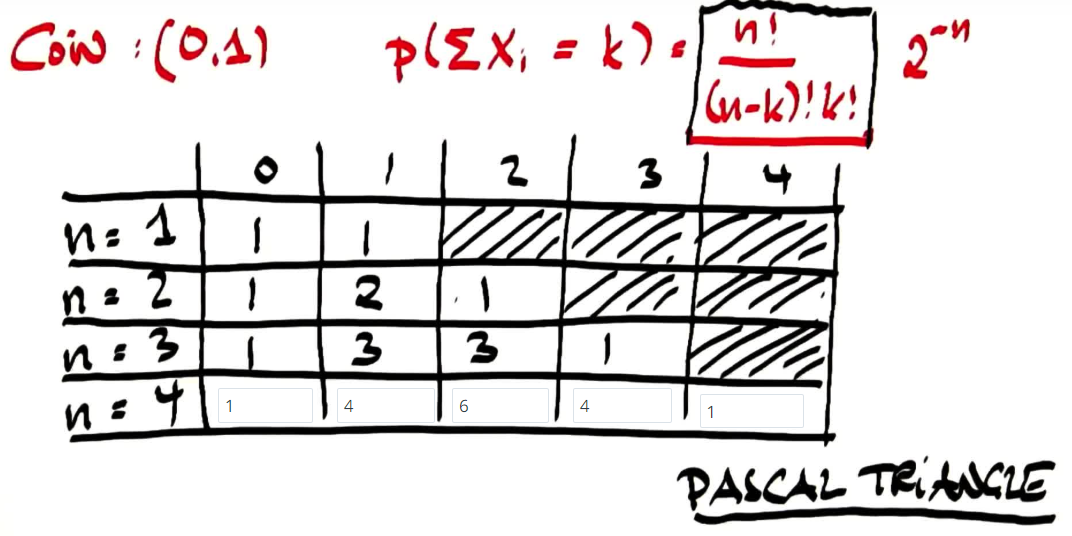 Coin : (0,1) p(ΣXᵢ = k) = n!/((n-k)!k!) 2⁻ⁿ
0 1 2 3 4
n = 1 1 1
n = 2 1 2 1
n = 3 1 3 3 1
n = 4 1 4 6 4 1
PASCAL TRiANGLE